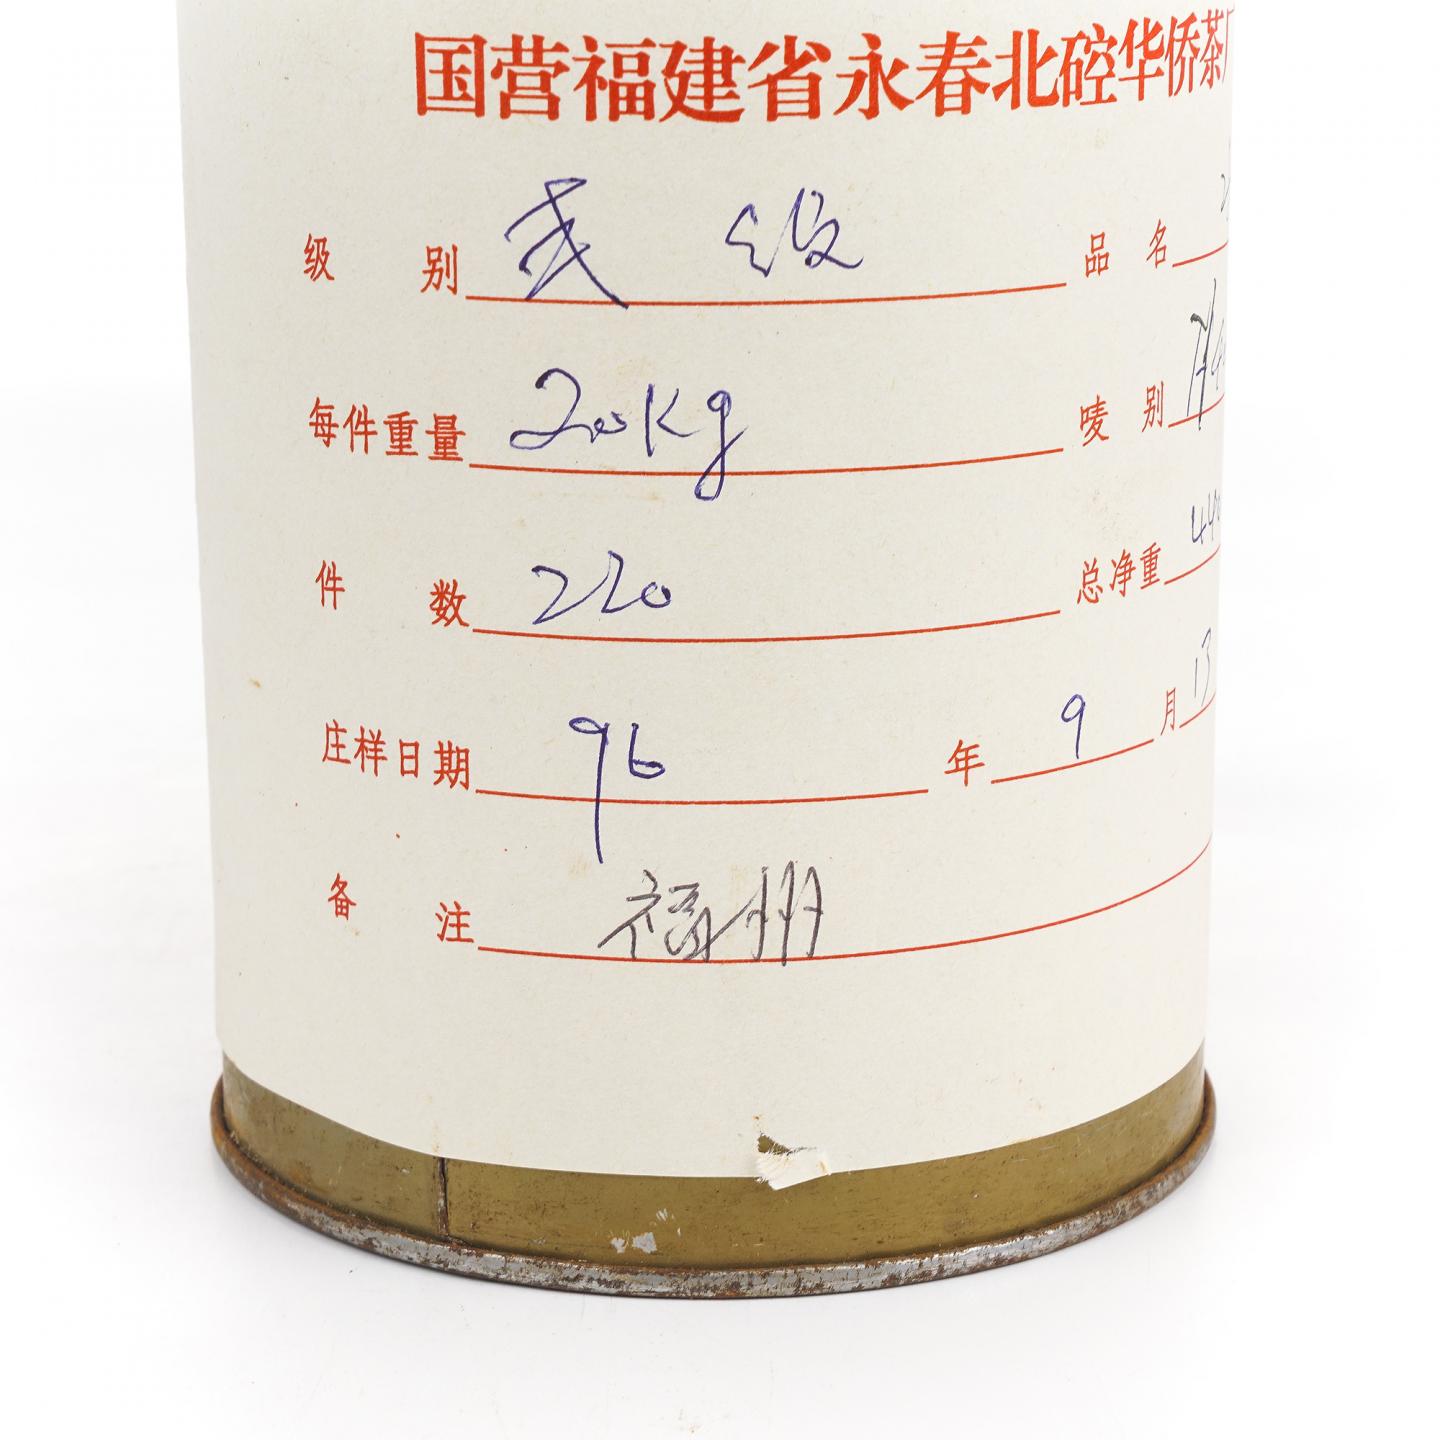 国营福建省永春北硿华侨茶厂
级 别 弍 级 品 名
每件重量 20Kg 唛 别
件 数 220 总净重 440
庄样日期 96 年 9 月 13
备 注 福州